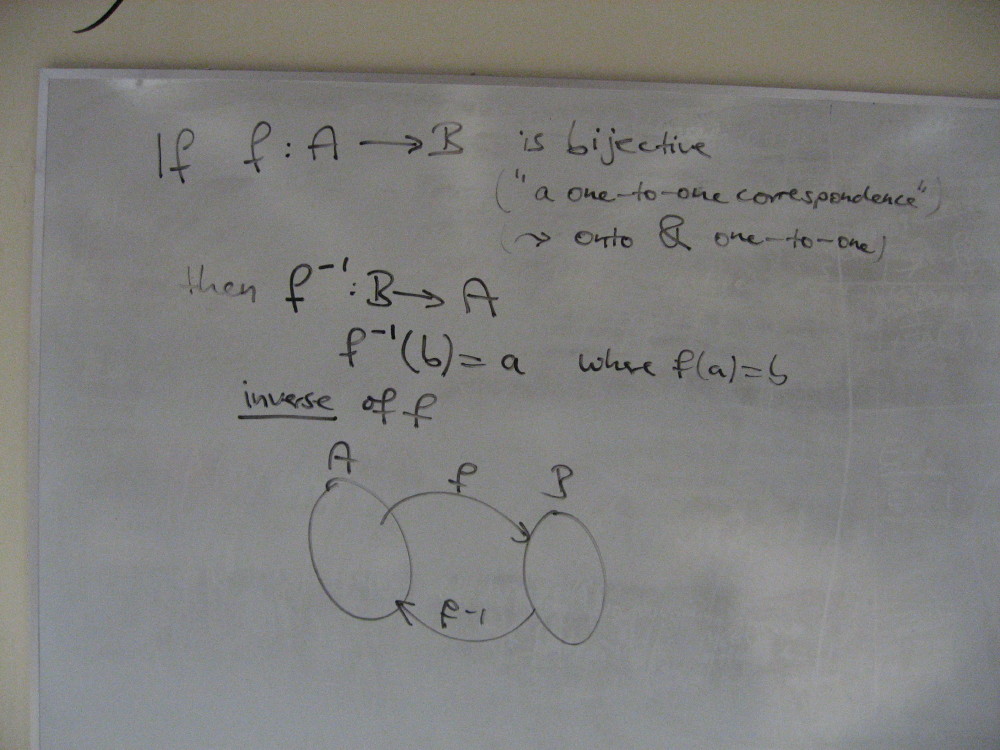 If f : A → B is bijective
("a one-to-one correspondence")
(↝ onto & one-to-one)
then f⁻¹ : B → A
f⁻¹(b) = a where f(a) = b
inverse of f
A f B
f⁻¹